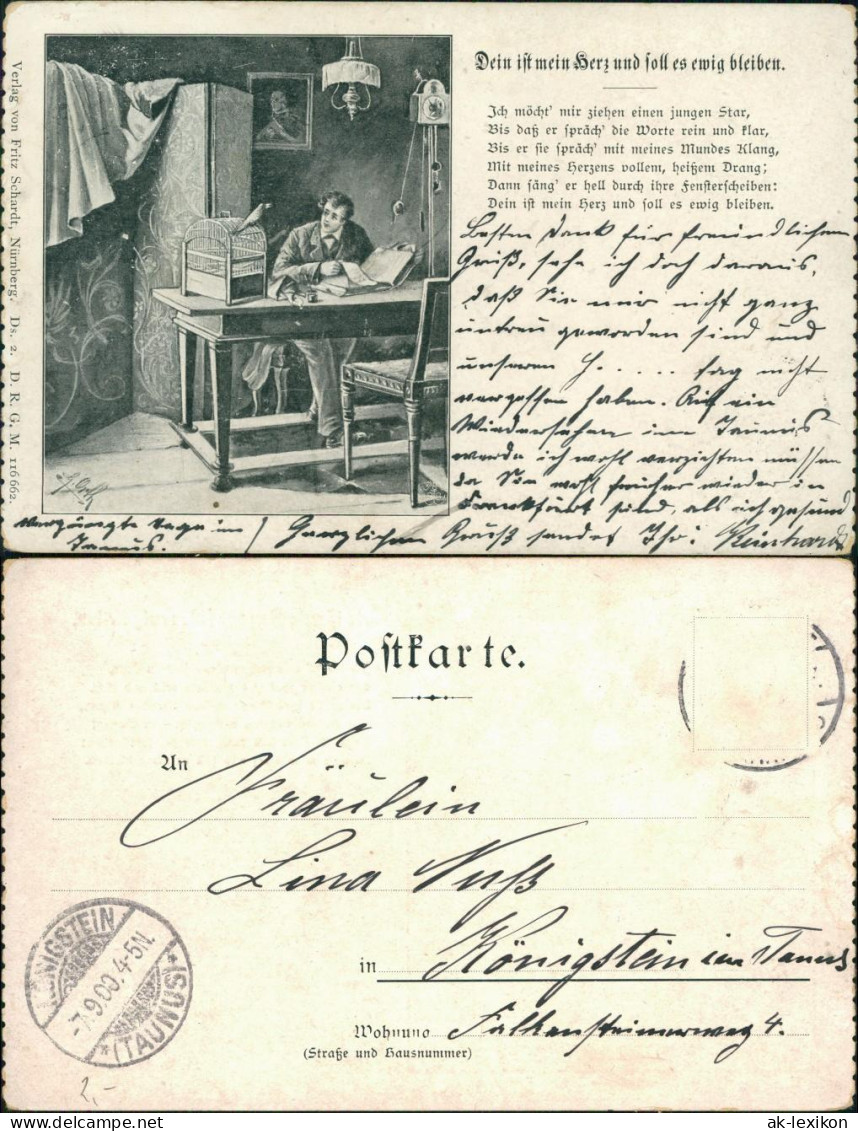 Verlag von Fritz Schardt, Nürnberg. Ds. 2. D. R. G. M. 116662.
Dein ist mein Herz und soll es ewig bleiben.
Ich möcht' mir ziehen einen jungen Star,
Bis daß er spräch' die Worte rein und klar,
Bis er sie spräch' mit meines Mundes Klang,
Mit meines Herzens vollem, heißem Drang;
Dann säng' er hell durch ihre Fensterscheiben:
Dein ist mein Herz und soll es ewig bleiben.
Besten Dank für freundlichen
Gruß, sehe ich doch daraus,
daß Sie mir nicht ganz
untreu geworden sind und
unseren H..... tag nicht
vergessen haben. Auf ein
Wiedersehen im Taunus
werde ich wohl verzichten müssen
da Sie wohl früher wieder in
Frankfurt sind, als ich gesund
Tage im
Taunus.
Herzlichen Gruß sendet Ihr: Reinhard
Postkarte.
An
Fräulein
Lina Nuß
in Königstein im Taunus
Wohnung Falkensteinerweg 4.
(Straße und Hausnummer)
KÖNIGSTEIN
-7.9.00.4-5N.
*(TAUNUS)*
2,-
ak-lexikon